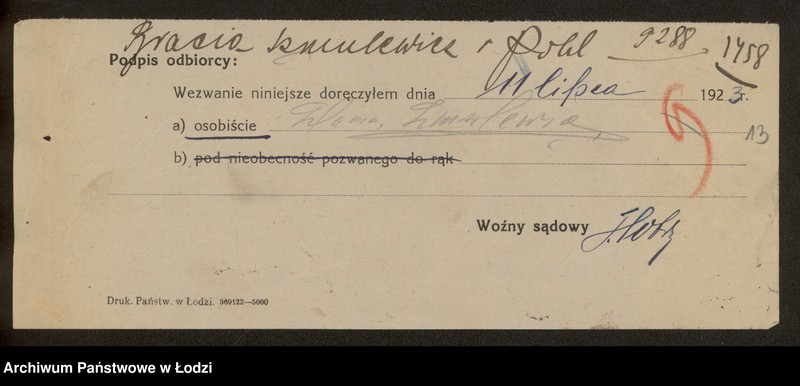 Bracia Szmulewicz i Pohl 9288 1458
Podpis odbiorcy:
Wezwanie niniejsze doręczyłem dnia 11 lipca 1923 r.
a) osobiście Szmulewicz 13
b) pod nieobecność pozwanego do rąk
Woźny sądowy
Druk. Państw. w Łodzi. 369122—5000
Archiwum Państwowe w Łodzi